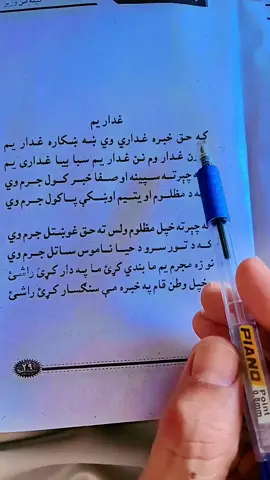 غدار يم
که حق خبره غداري وي ښه ښکاره غدار يم
غدار وم نن غدار يم سبا بيا غداری يم
چېرته سپينه او صفا خبر کول جرم وي
د مظلوم او يتيم اوښکې پاکول جرم وي
چېرته خپل مظلوم ولس ته حق غوښتل جرم وي
که د تور سرو د حيا ناموس ساتل جرم وي
نو زه مجرم يم ما بندي کړئ ما په دار کړئ راشئ
خپل وطن قام په خبره مې سنګسار کړئ راشئ
٢٩
PIANO
Point
0.8mm